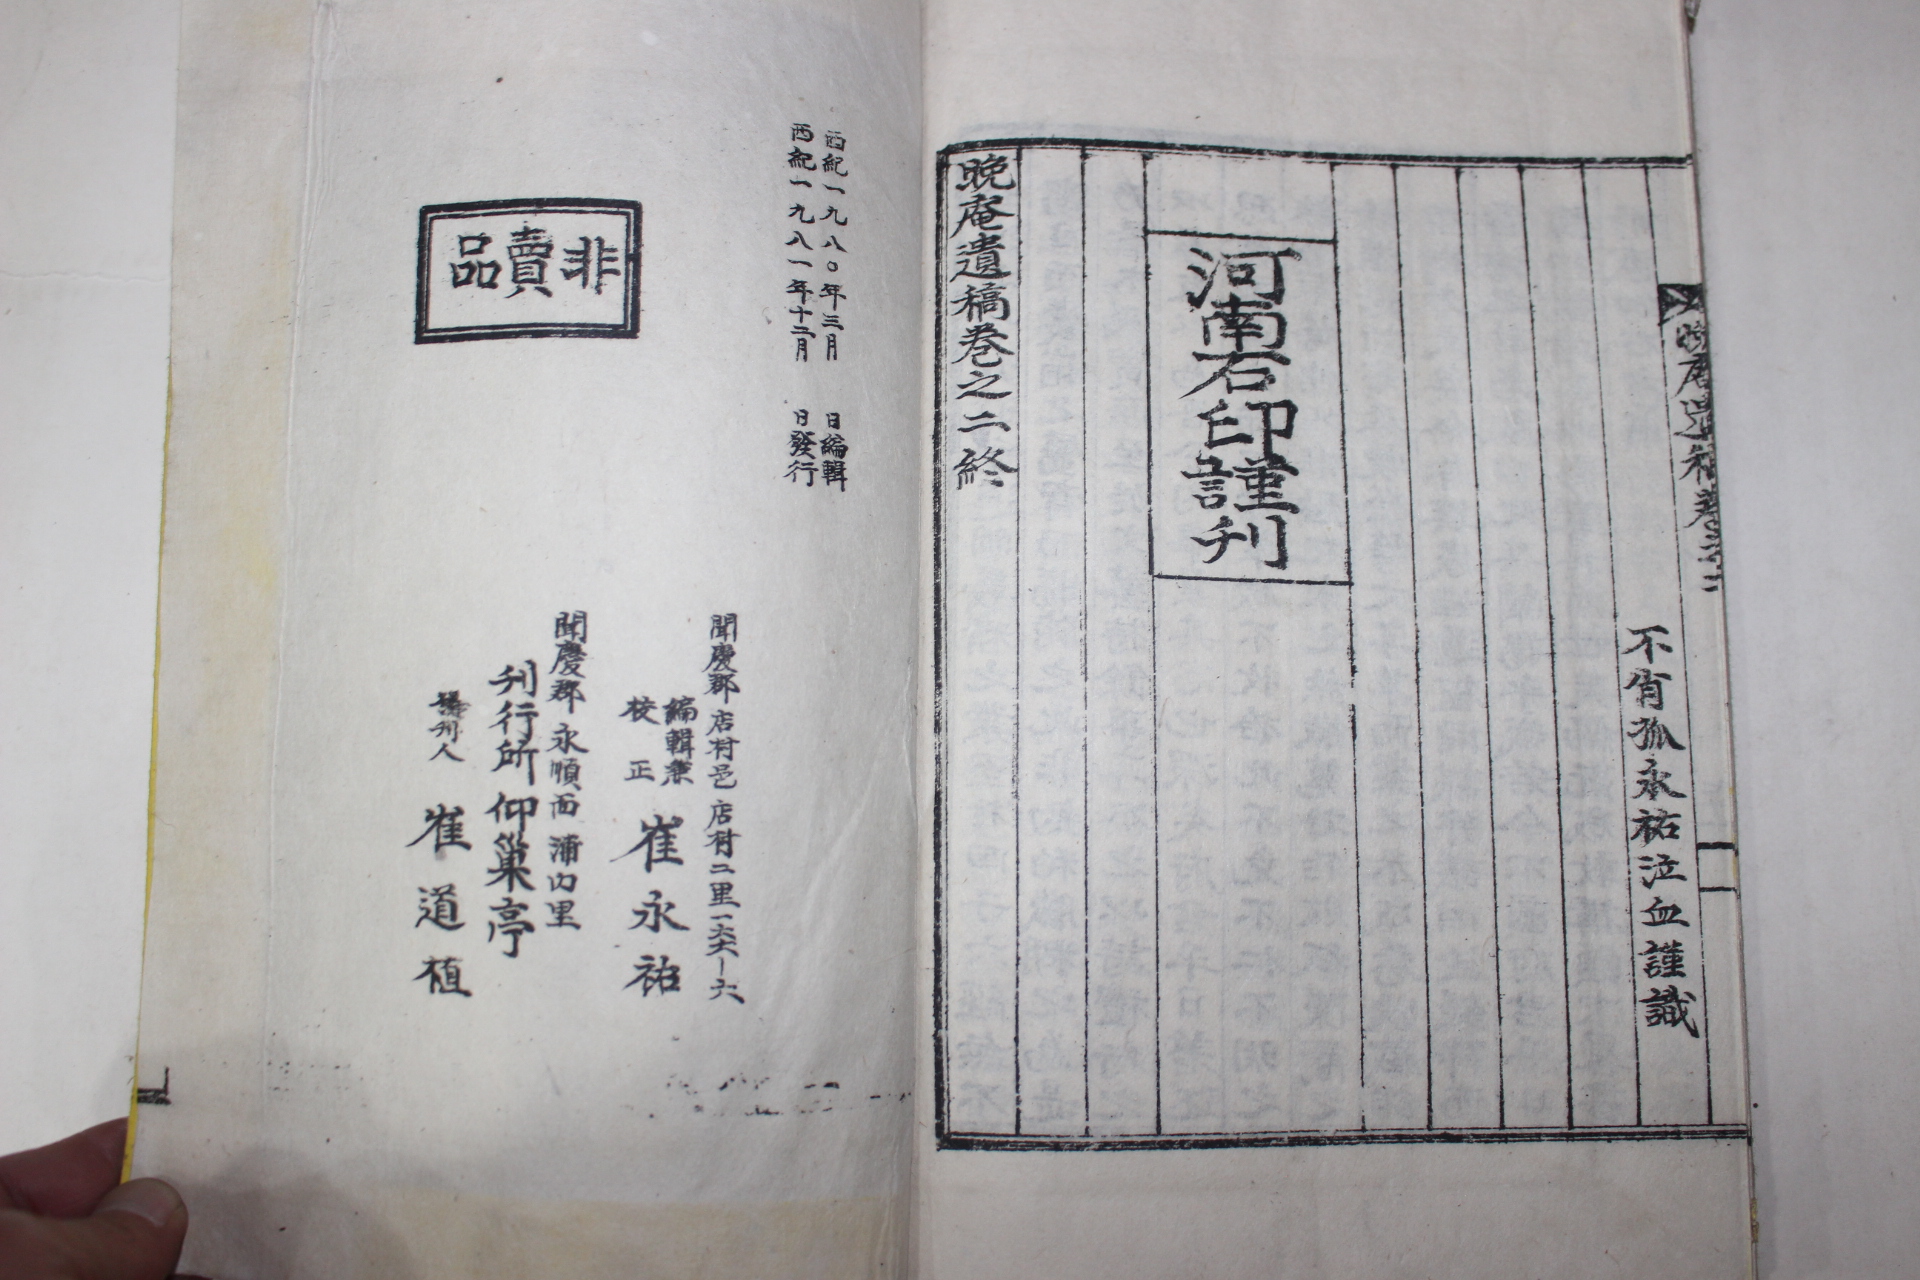 晚庵遺稿卷之二
不肖孤永祐泣血謹識
河南石印謹刊
晚庵遺稿卷之二終
西紀一九八〇年三月 日編輯
西紀一九八一年十二月 日發行
非賣品
聞慶郡店村邑店村二里一六六-六
編輯兼
校正
崔永祐
聞慶郡永順面浦內里
刊行所仰巢亭
崔道植